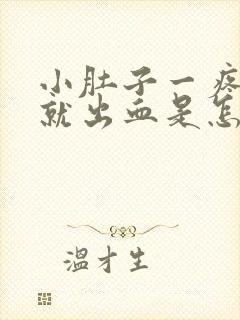 小肚子一疼
就出血是怎
温才生